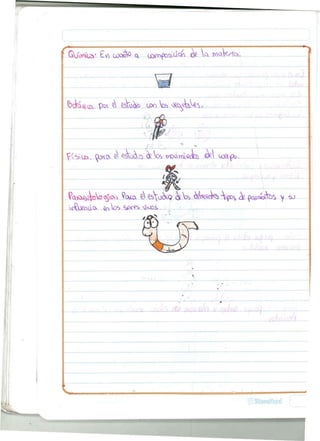 Química: En cuanto a composición de la materia.
Botánica: por el estudio con los vegetales.
Física: para el estudio de los movimientos del cuerpo.
Parasitología: Para el estudio de los diferentes tipos de parásitos y su
influencia en los seres vivos.
Standford